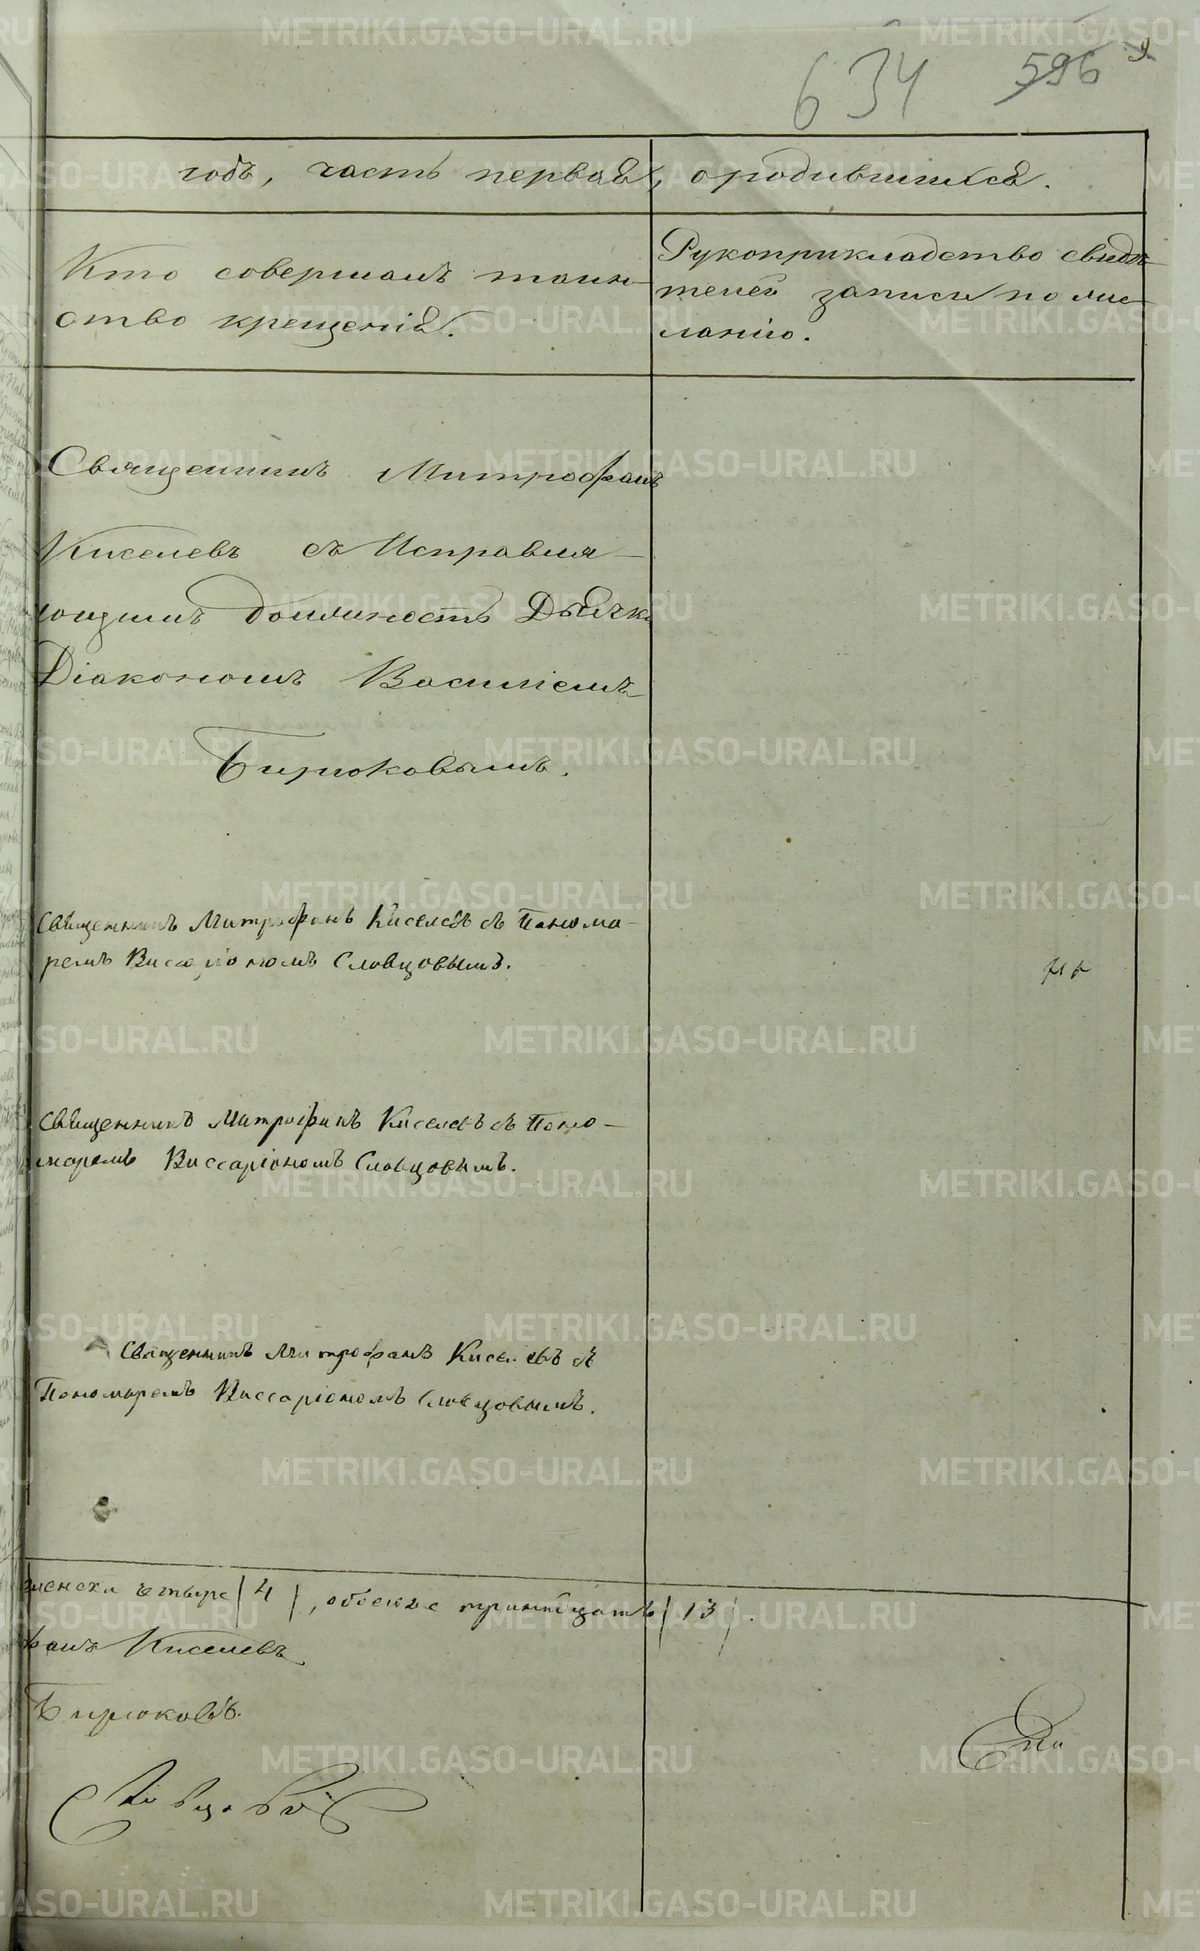 634 596 9
годъ, часть первая, о родившихся.
Кто совершалъ таин-
ство крещенія.
Рукоприкладство свидѣ-
телей записи по же-
ланію.
Священникъ Митрофанъ
Киселевъ съ Исправля-
ющимъ должность Дьячка
Діакономъ Василіемъ
Бирюковымъ.
Священникъ Митрофанъ Киселевъ съ Понома-
ремъ Висаріономъ Словцовымъ.
Священникъ Митрофанъ Киселевъ съ Поно-
маремъ Виссаріономъ Словцовымъ.
Священникъ Митрофанъ Киселевъ съ
Пономаремъ Виссаріономъ Словцовымъ.
женска четыре /4/, обоего тринадцать /13/.
фанъ Киселевъ
Бирюковъ.
Словцовъ
METRIKI.GASO-URAL.RU